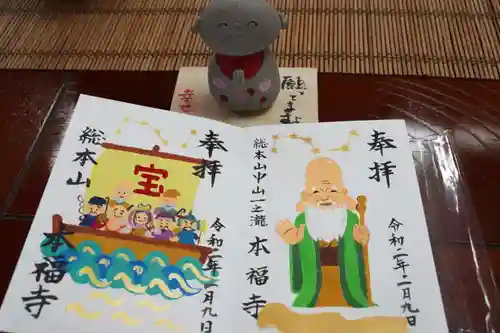 願ってます
幸せ
奉拝
総本山中山一之瀧
本福寺
令和二年二月九日
奉拝
宝
総本山
本福寺
令和二年二月九日